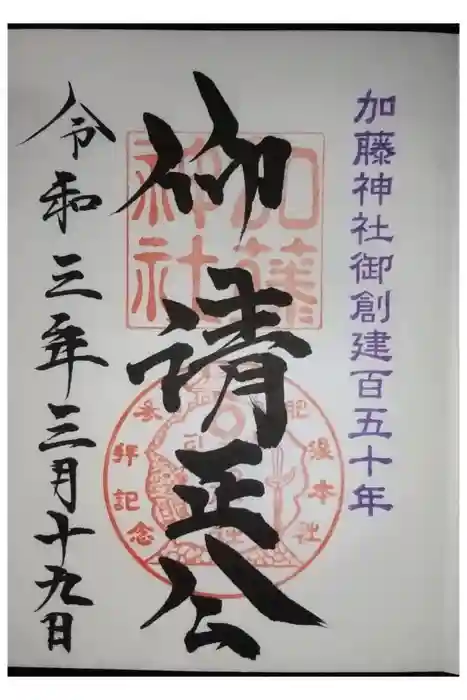 加藤神社御創建百五十年
仰清正公
加藤
神社
肥後本社
参拝記念
令和三年三月十九日